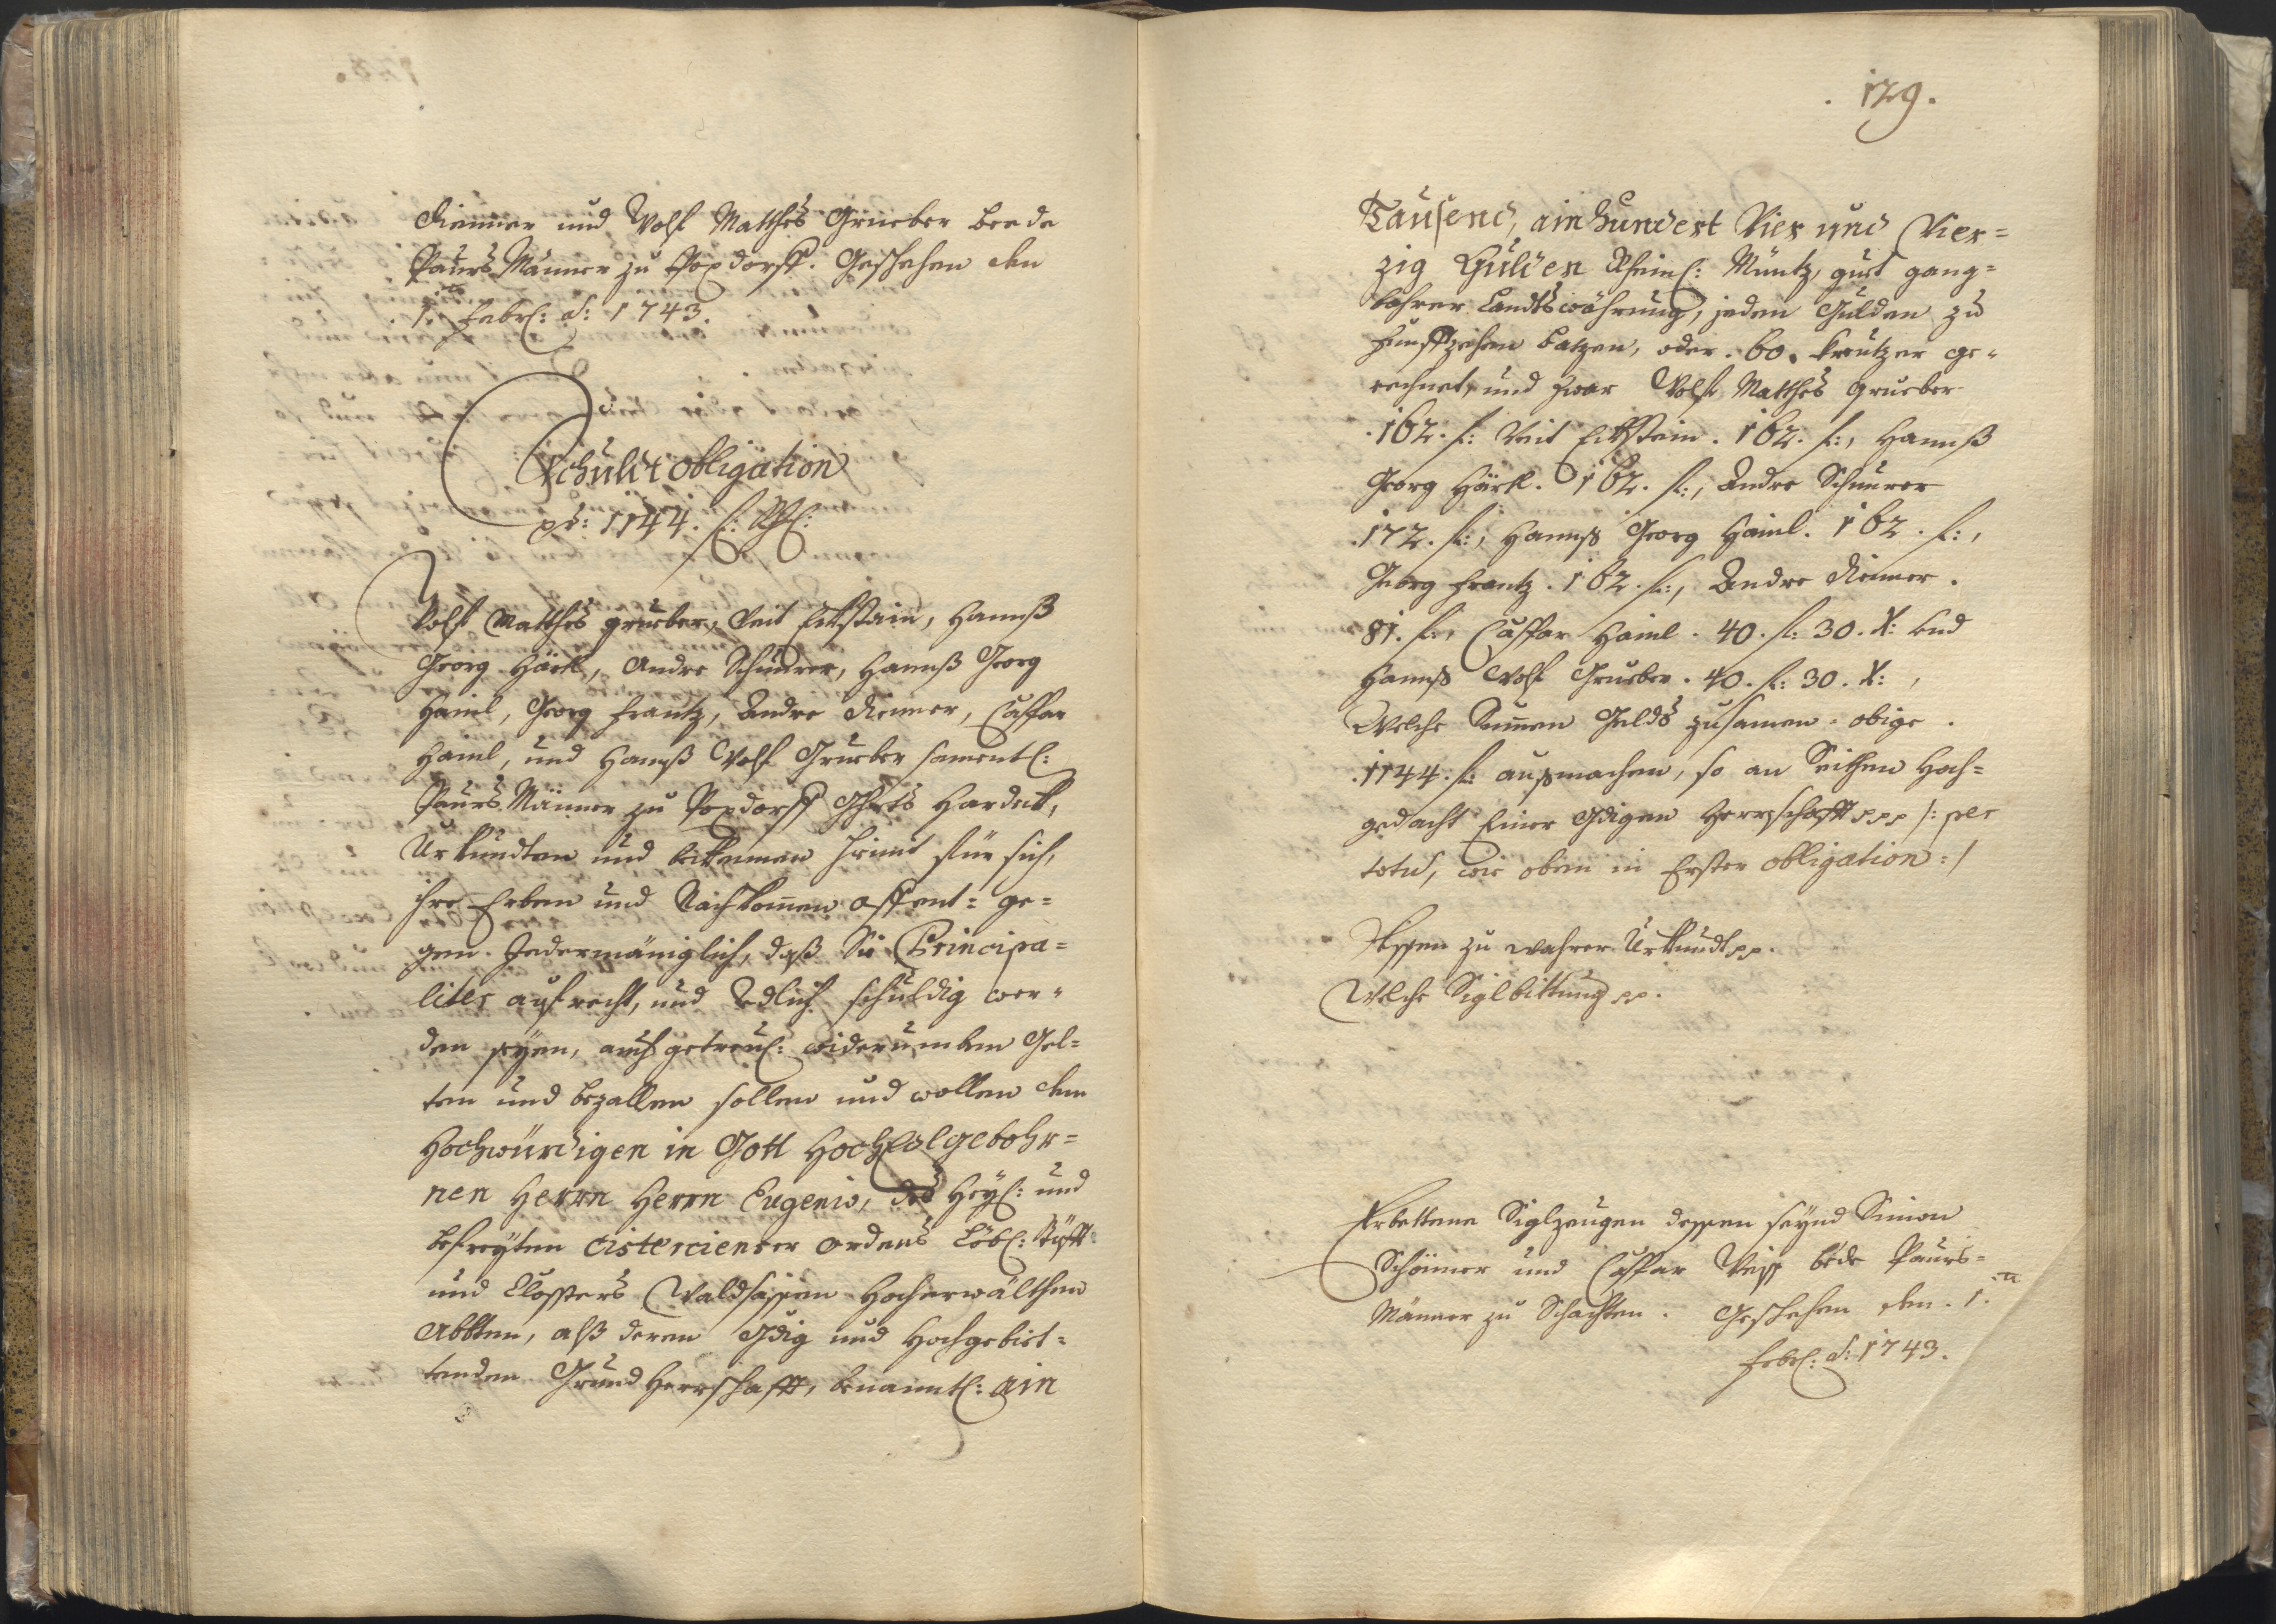 Riemer und Wolf Matthes Grueber beede
Paurs Männer zu Poxdorff. Geschehen den
1.ten Febr: a: 1743.
Schuldt obligation
pr: 1144. f: Rh:
Wolf Matthes grueber, Veit Eckstain, Hannß
Georg Härtl, Andre Schnurer, Hannß Georg
Haiml, Georg Frantz, Andre Riemer, Caspar
Haiml, und Hannß Wolf Grueber samentl:
Paurs Männer zu Poxdorff Ghrts Hardeck,
Urkundten und bekennen hiemit für sich,
ihre Erben und Nachkomen offent- ge=
gen Jedermäniglich, daß Sie Principa=
liter aufrecht, und Redlich schuldig wor=
den seyen, auch getreul: widerumben Gel=
ten und bezallen sollen und wollen dem
Hochwürdigen in Gott HochEdlgebohr=
nen Herrn Herrn Eugenio, des Heyl: und
befreyten Cistercienser ordens Löbl: Stüfft
und Closters Waldsassen Hocherwälthen
Abbten, alß deren Gdig und Hochgebiet=
tenden Grund Herrschafft, benanntl: ain
. 179.
Tausend, ain hundert Vier und Vier=
zig Gulden Rheinl: Müntz, guet gang=
bahrer Landtswährung, jeden Gulden zu
funffzehen Batzen, oder . 60. kreutzer ge=
rechnet, und zwar Wolf Matthes Grueber
. 162. f: Veit Eckstain . 162. f:, Hannß
Georg Härtl . 162. f:, Andre Schnurer
. 172. f:, Hannß Georg Haiml . 162. f:,
Georg Frantz . 162. f:, Andre Riemer .
81. f:, Caspar Haiml . 40. f: 30. x: und
Hannß Wolf Grueber . 40. f: 30. x: ,
Welche Summen Gelds zusamen - obige .
. 1144. f: außmachen, so an Seithen Hoch=
gedacht Einer Gdigen Herrschafft ppp /: per
totu, wie oben in Erster obligation :/
Dessen zu wahrer Urkundt pp.
Welche Siglbittung pp.
Erbettene Siglzeugen dessen seynd Simon
Schömer und Caspar Weiss bede Paurs=
Männer zu Schachten . Geschehen den . 1.ten
Febr: a: 1743.